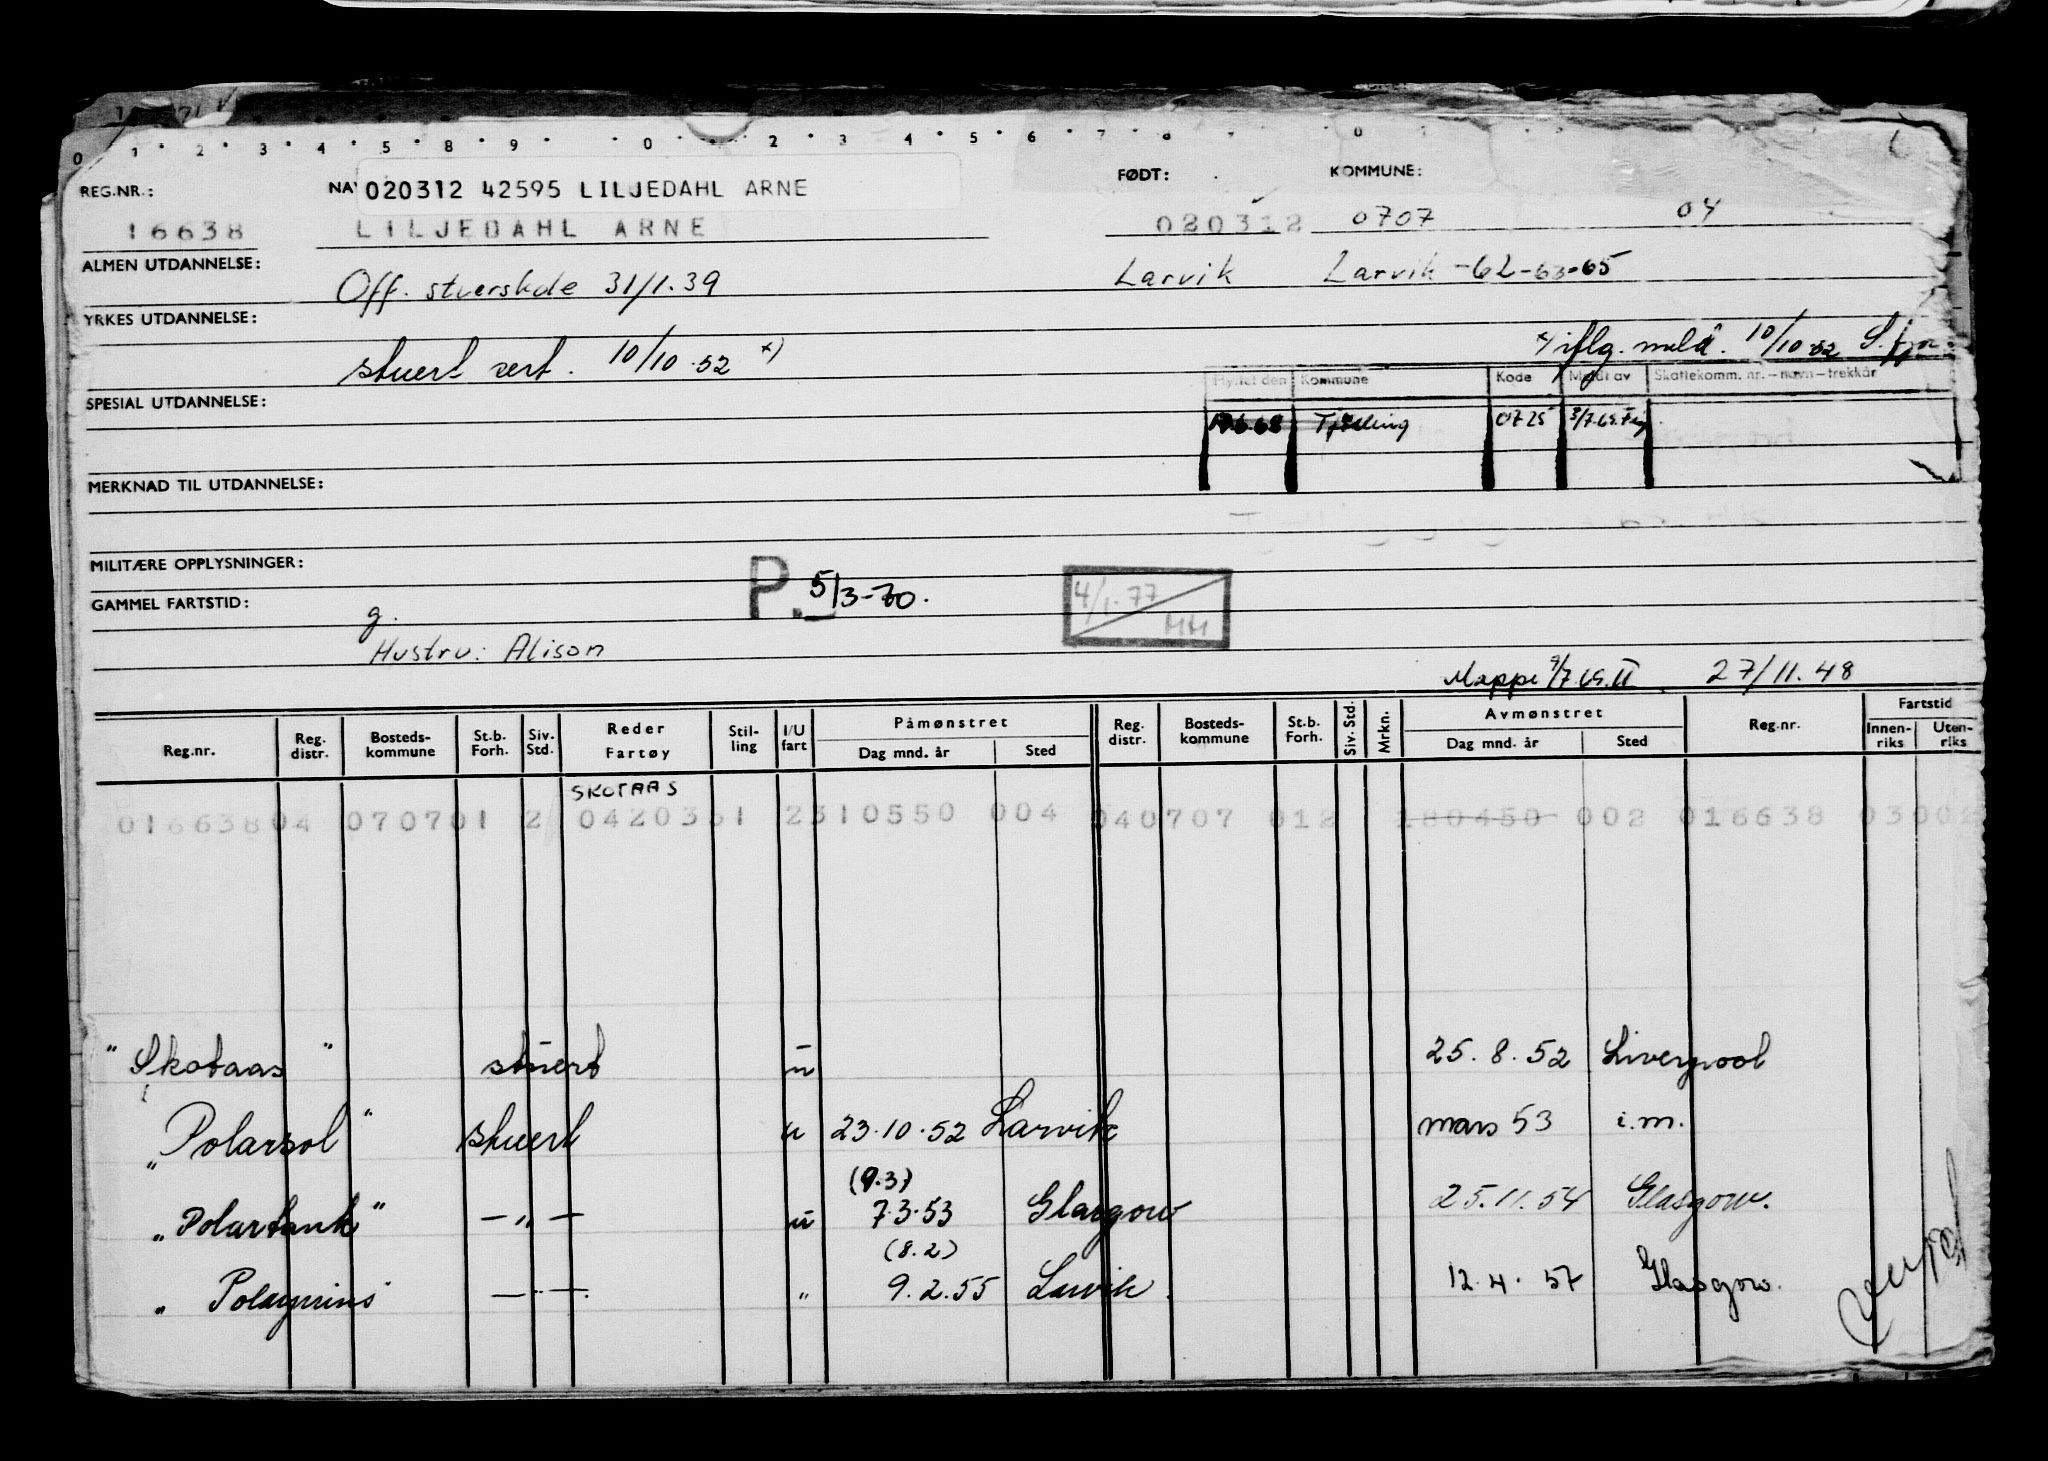 0 1 2 3 4 5 8 9 0 2 3 4 5 6 7 8 0
REG.NR.: NAV 020312 42595 LILJEDAHL ARNE FØDT: KOMMUNE:
16638 LILJEDAHL ARNE 020312 0707 04
ALMEN UTDANNELSE: Off. stuerskole 31/1.39 Larvik Larvik -62-63-65
YRKES UTDANNELSE: stuert sert. 10/10.52 x) x) iflg. meld. 10/10.52
Flyttet den Kommune Kode Meldt av Skattekomm. nr. – navn – trekkår
SPESIAL UTDANNELSE:
17.6.68 Tjølling 0725
MERKNAD TIL UTDANNELSE:
MILITÆRE OPPLYSNINGER:
P. 5/3-70.
4/1.77 HH
GAMMEL FARTSTID: g.
Hustru: Alison
Mappe 9/7.69.II 27/11.48
Reg.nr. Reg. distr. Bosteds-kommune St.b. Forh. Siv. Std. Reder Fartøy Stil-ling I/U fart Påmønstret Dag mnd. år Sted Reg. distr. Bosteds-kommune St.b. Forh. Siv. Std. Mrkn. Avmønstret Dag mnd. år Sted Reg.nr. Fartstid Innen-riks Uten-riks
SKOTAAS
016638 04 0707 01 2 0420351 2 310550 004 040707 012 180450 002 016638 0300
" Skotaas " stuert u 25.8.52 Liverpool
" Polarsol " stuert u 23.10.52 Larvik mars 53 i.m.
(9.3)
" Polartank " — " — u 7.3.53 Glasgow 25.11.54 Glasgow.
(8.2)
" Polarprins — " — " 9.2.55 Larvik. 12.4.57 Glasgow.